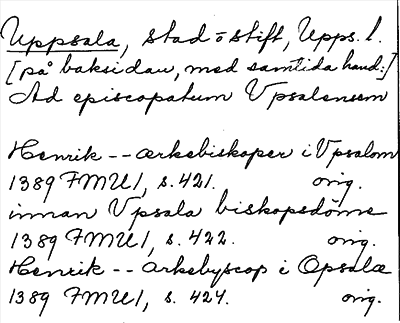 Uppsala, stad o stift, Upps. l.
[på baksidan, med samtida hand:]
Ad episcopatum Vpsalensem
Henrik -- ærkebiskoper i Vpsalom
1389 FMU 1, s. 421. orig.
innan Vpsala biskopsdöme
1389 FMU 1, s. 422. orig.
Henrik -- ærkebyscop i Opsalæ
1389 FMU 1, s. 424. orig.